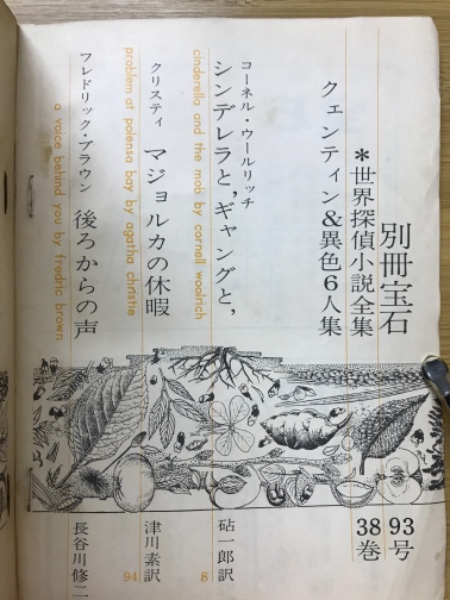 別冊宝石
93号
*世界探偵小説全集
38巻
クェンティン&異色6人集
コーネル・ウールリッチ
シンデレラと,ギャングと,
砧一郎訳
cinderella and the mob by cornell woolrich
8
クリスティ
マジョルカの休暇
津川素訳
problem at polensa bay by agatha christie
94
フレドリック・ブラウン
後ろからの声
長谷川修二
a voice behind you by fredric brown